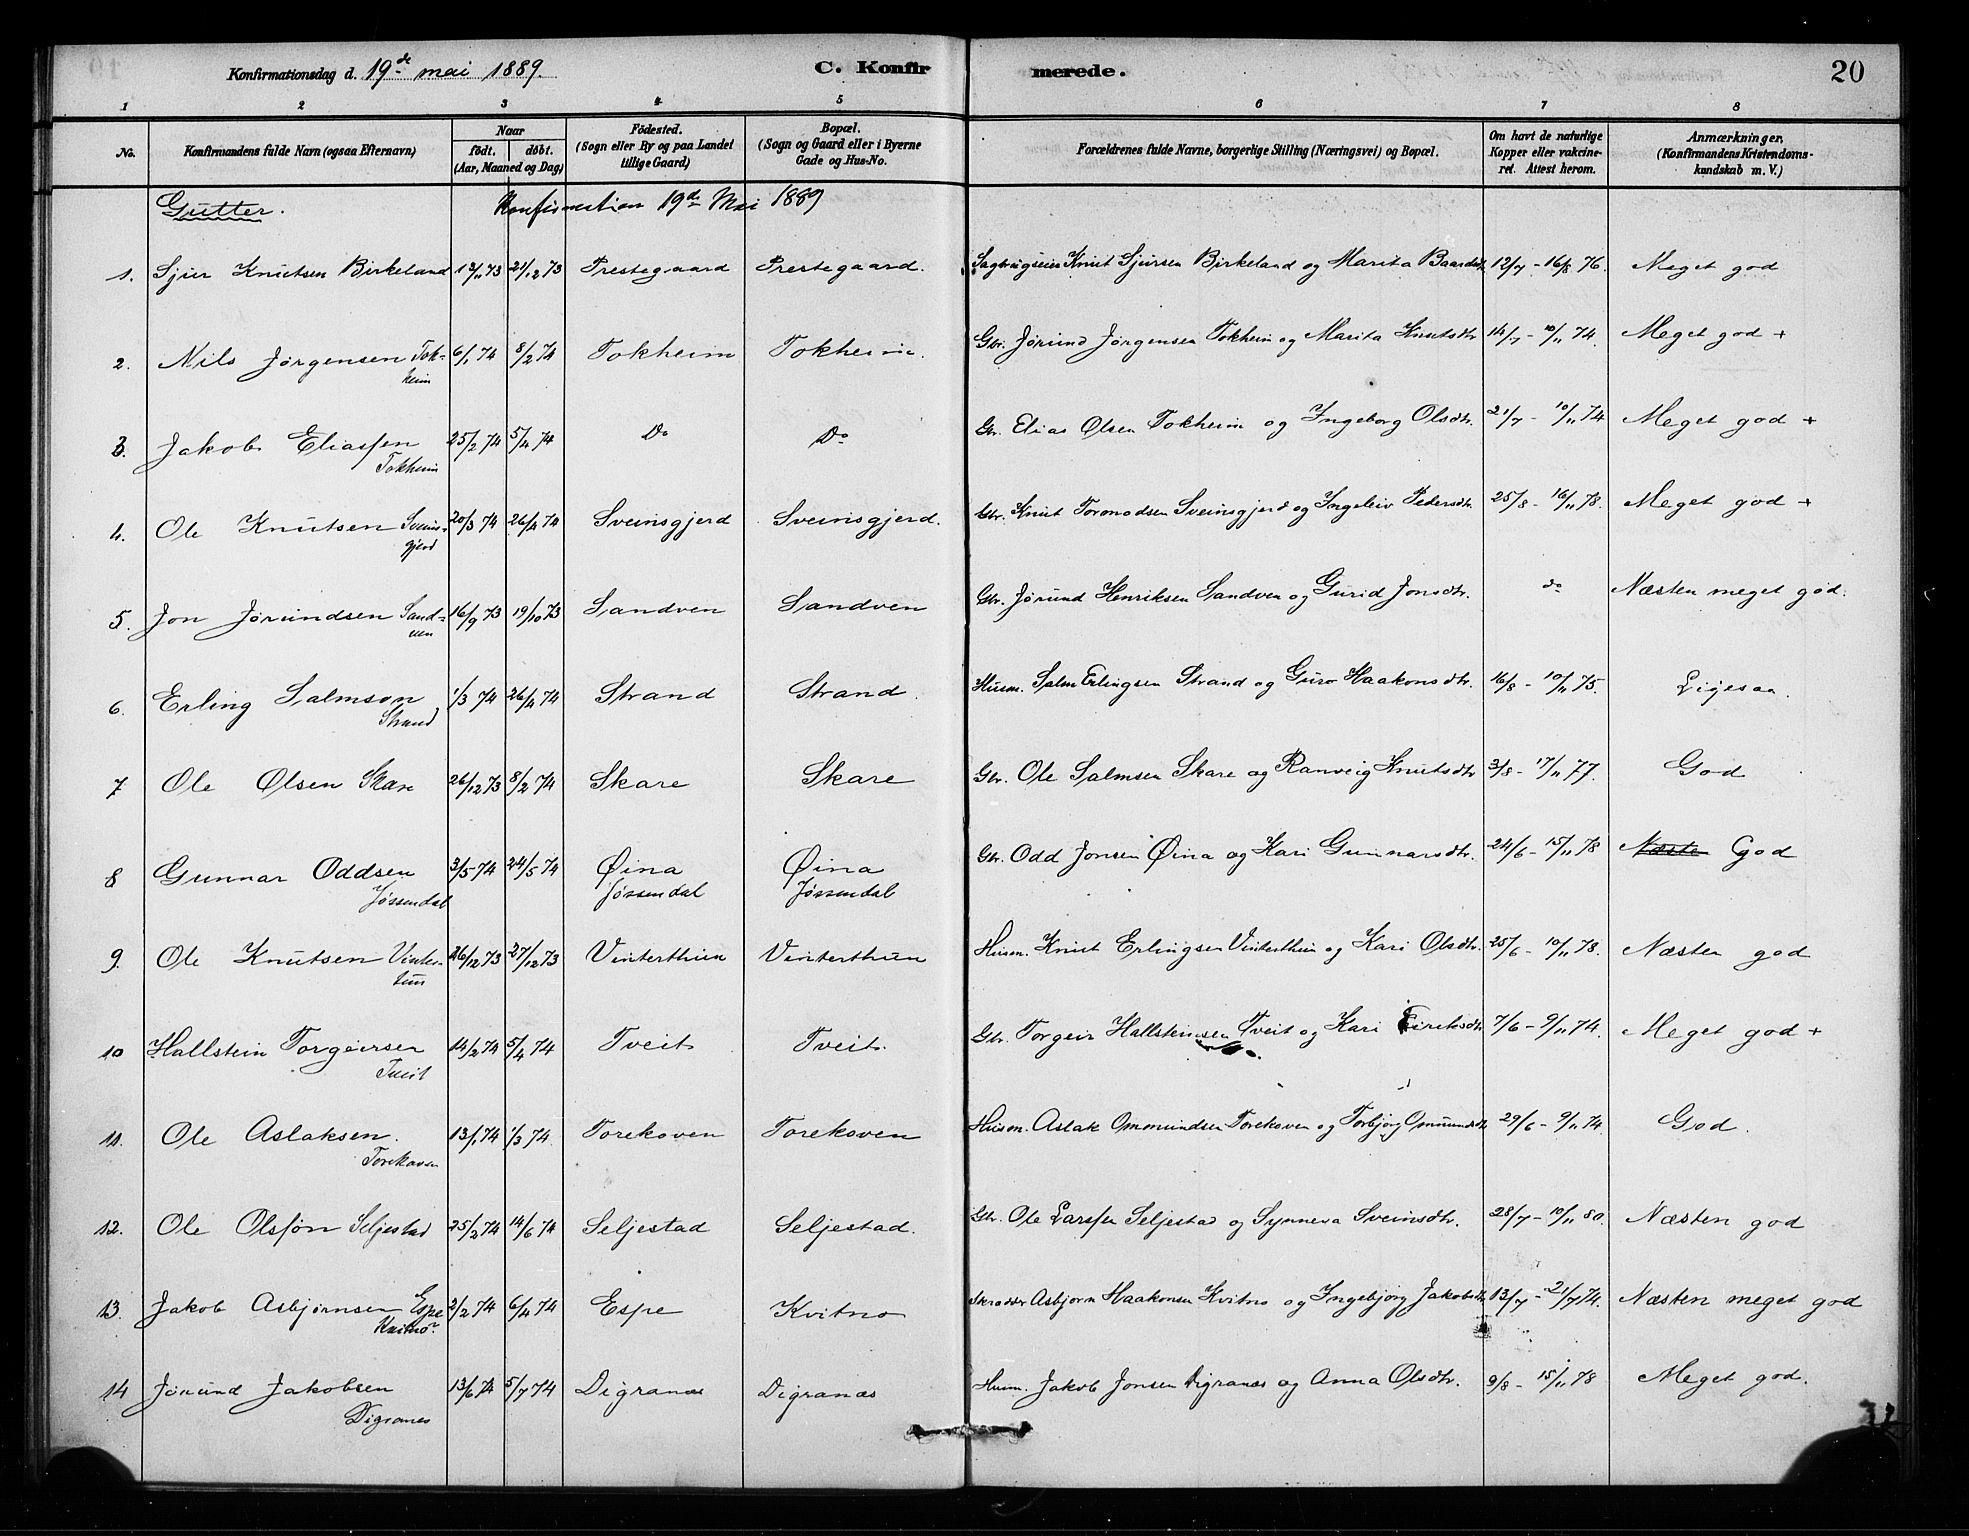 Konfirmationsdag d. 19de mai 1889. C. Konfirmerede. 20
1 2 3 4 5 6 7 8
No. Konfirmandens fulde Navn (ogsaa Efternavn) Naar födt. döbt. (Aar, Maaned og Dag) Födested. (Sogn eller By og paa Landet tillige Gaard) Bopæl. (Sogn og Gaard eller i Byerne Gade og Hus-No. Forældrenes fulde Navne, borgerlige Stilling (Næringsvei) og Bopæl. Om havt de naturlige Kopper eller vakcineret. Attest herom. Anmærkninger, (Konfirmandens Kristendomskundskab m. V.)
Gutter. Konfirmation 19de Mai 1889
1. Sjur Knutsen Birkeland 13/11 73 21/12 73 Prestegaard Prestegaard. Knut Sjursen Birkeland og Marita Baardsdtr. 12/7 - 16/8 76. Meget god
2. Nils Jørgensen Tokheim 6/1 74 8/2 74 Tokheim Tokheim. Gbr. Jørund Jørgensen Tokheim og Marita Knutsdtr 14/7 - 10/11 74. Meget god +
3. Jakob Eliassen Tokheim 25/2 74 5/4 74 Do Do Gbr. Elias Olsen Tokheim og Ingeborg Olsdtr. 21/7 - 10/11 74 Meget god +
4. Ole Knutsen Sveinsgjerd 20/3 74 26/4 74 Sveinsgjerd Sveinsgjerd. Gbr. Knut Toromodsen Sveinsgjerd og Ingeleiv Pedersdtr. 25/8 - 16/11 78. Meget god +
5. Jon Jørundsen Sandven 16/9 73 19/10 73 Sandven Sandven Gbr. Jørund Henriksen Sandven og Gurid Jonsdtr. do Næsten meget god.
6. Erling Salmson Strand 1/3 74 26/4 74 Strand Strand. Husm. Salm Erlingsen Strand og Guro Haakonsdtr. 16/8 - 10/11 75. Ligesaa.
7 Ole Olsen Skare 26/12 73 8/2 74 Skare Skare Gbr. Ole Salmsen Skare og Ranveig Knutsdtr 3/8 - 17/11 77. God
8 Gunnar Oddsen Jøssendal 3/5 74 24/5 74 Øina Jøssendal Øina Jøssendal Gbr. Odd Jonsen Øina og Kari Gunnarsdtr. 24/6 - 15/11 78 Næste God
9. Ole Knutsen Vintertun 26/12 73 27/12 73 Vinterthun Vinterthun Husm. Knut Erlingsen Vinterthun og Kari Olsdtr. 25/6 - 10/11 78. Næsten god
10 Hallstein Torgeirsen Tveit 14/2 74 5/4 74 Tveit Tveit. Gbr. Torgeir Hallsteinsen Tveit og Kari Eiriksdtr 7/6 - 9/11 74. Meget god +
11. Ole Aslaksen. Torekoven 13/1 74 1/3 74. Torekoven Torekoven Husm. Aslak Ommundsen Torekoven og Torbjørg Omundsdtr 29/6 - 9/11 74. God.
12. Ole Olsøn Seljestad 25/2 74 14/6 74 Seljestad Seljestad. Gbr. Ole Larsen Seljestad og Synneva Sveinsdtr. 28/7 - 10/11 80. Næsten god
13 Jakob Asbjørnsen Espe Kvitno 2/2 74 6/4 74 Espe Kvitno Skrædder Asbjørn Haakonsen Kvitno og Ingebjørg Jakobsdtr 13/7 - 21/7 74. Næsten meget god
14 Jørund Jakobsen Digranes 13/6 74 5/7 74 Digranæs Digranæs Husm. Jakob Jonsen Digranæs og Anna Olsdtr. 9/8 - 15/11 78 Meget god.